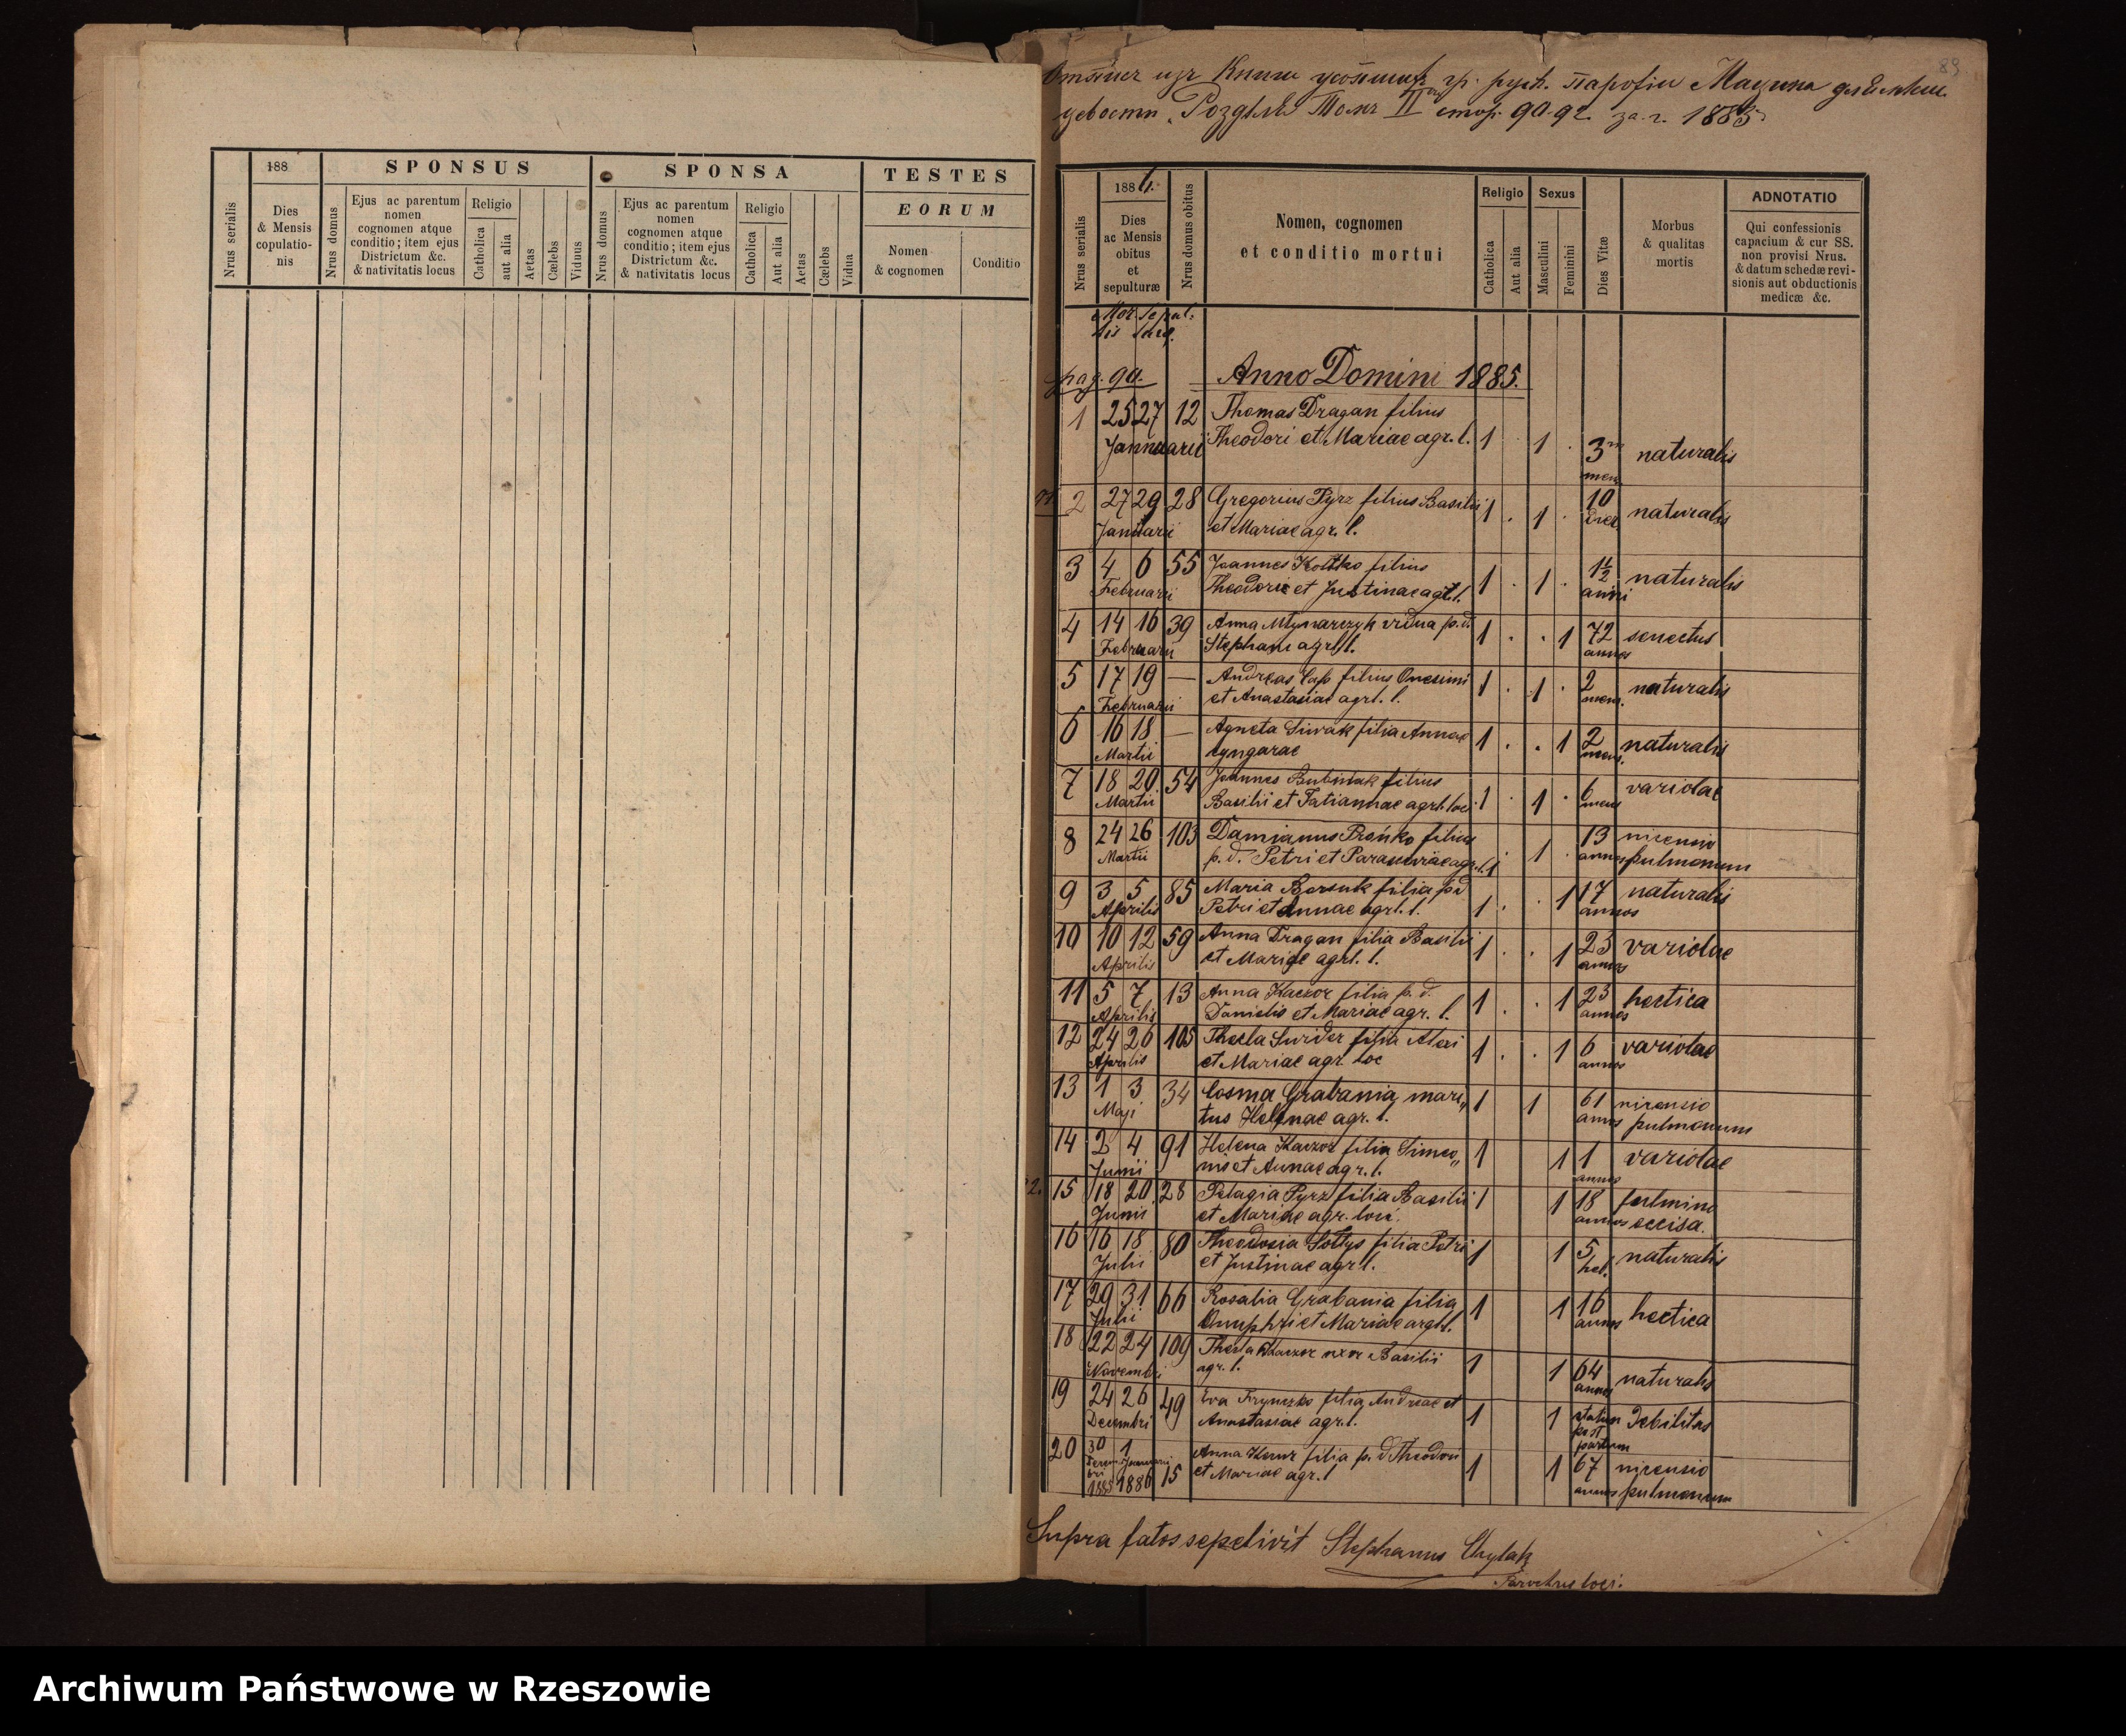 188
SPONSUS
SPONSA
TESTES
EORUM
Nrus serialis
Dies
& Mensis
copulatio-
nis
Nrus domus
Ejus ac parentum
nomen
cognomen atque
conditio; item ejus
Districtum &c.
& nativitatis locus
Religio
Catholica
aut alia
Aetas
Cælebs
Viduus
Nrus domus
Ejus ac parentum
nomen
cognomen atque
conditio; item ejus
Districtum &c.
& nativitatis locus
Religio
Catholica
Aut alia
Aetas
Cælebs
Vidua
Nomen
& cognomen
Conditio
89
изъ Книги гр. парофіи
Томъ II стор. 90-92 за г. 1885
Nrus serialis
188
Dies
ac Mensis
obitus
et
sepulturæ
Nrus domus obitus
Nomen, cognomen
et conditio mortui
Religio
Catholica
Aut alia
Sexus
Masculini
Feminini
Dies Vitæ
Morbus
& qualitas
mortis
ADNOTATIO
Qui confessionis
capacium & cur SS.
non provisi Nrus.
& datum schedæ revi-
sionis aut obductionis
medicæ &c.
Mor Sepul.
tis turæ.
pag. 90. Anno Domini 1885.
1 25 27 12 Thomas Dragan filius
Januarii Theodori et Mariae agr. l. 1 . 1 . 3 men naturalis
2 27 29 28 Gregorius Pyrz filius Basilii
Januarii et Mariae agr. l. 1 . 1 . 10 naturalis
3 4 6 55 Joannes filius
Februarii Theodori et Justinae agr. l. 1 . 1 . 1½ anni naturalis
4 14 16 39 Anna Młynarczyk vidua p. d.
Februarii Stephani agr. l. 1 . . 1 72 annos senectus
5 17 19 — Andreas Cap filius Onesimi
Februarii et Anastasiae agrl. l. 1 . 1 . 2 mens. naturalis
6 16 18 — Agneta Siwak filia Annae
Martii zyngarae 1 . . 1 2 mens. naturalis
7 18 20 54 Joannes Bubniak filius
Martii Basilii et Tatiannae agrl. loci 1 . 1 . 6 mens variolae
8 24 26 103 Damianus Prońko filius
Martii p. d. Petri et Parasceviae agr. l. 1 . 1 . 13 annos pulmonum
9 3 5 85 Maria Borsuk filia p d
Aprilis Petri et Annae agrl. l. 1 . . 1 17 annos naturalis
10 10 12 59 Anna Dragan filia Basilii
Aprilis et Mariae agrl. l. 1 . . 1 23 annos variolae
11 5 7 13 Anna Kaczor filia p. d.
Aprilis Danielis et Mariae agr. l. 1 . . 1 23 annos hectica
12 24 26 105 Thecla Swider filia Alexi
Aprilis et Mariae agr. loc 1 . . 1 6 annos variolae
13 1 3 34 Cosma Grabania mari„
Maji tus Helenae agr. l. 1 1 61 annos pulmonum
14 2 4 91 Helena Kaczor filia Simeo„
Junii nis et Annae agr. l. 1 1 1 annos variolae
15 18 20 28 Pelagia Pyrz filia Basilii
Junii et Mariae agr. loci. 1 1 18 annos fulmine occisa.
16 16 18 80 Theodosia Sołtys filia Petri
Julii et Justinae agr l. 1 1 5 heb. naturalis
17 29 31 66 Rosalia Grabania filia
Julii Onuphri et Mariae agrl. 1 1 16 annos hectica
18 22 24 109 Thecla Kaczor uxor Basilii
Novembri agr. l. 1 1 64 annos naturalis
19 24 26 49 Eva Hrynczko filia Andreae et
Decembri Anastasiae agr. l. 1 1 statim post partum debilitas
20 30 1 15 Anna filia p. d Theodori
1885 Januarii 1886 et Mariae agr. l 1 1 67 annos pulmonum
Supra fatos sepelivit Stephanus Chylak
Parochus loci.
Archiwum Państwowe w Rzeszowie